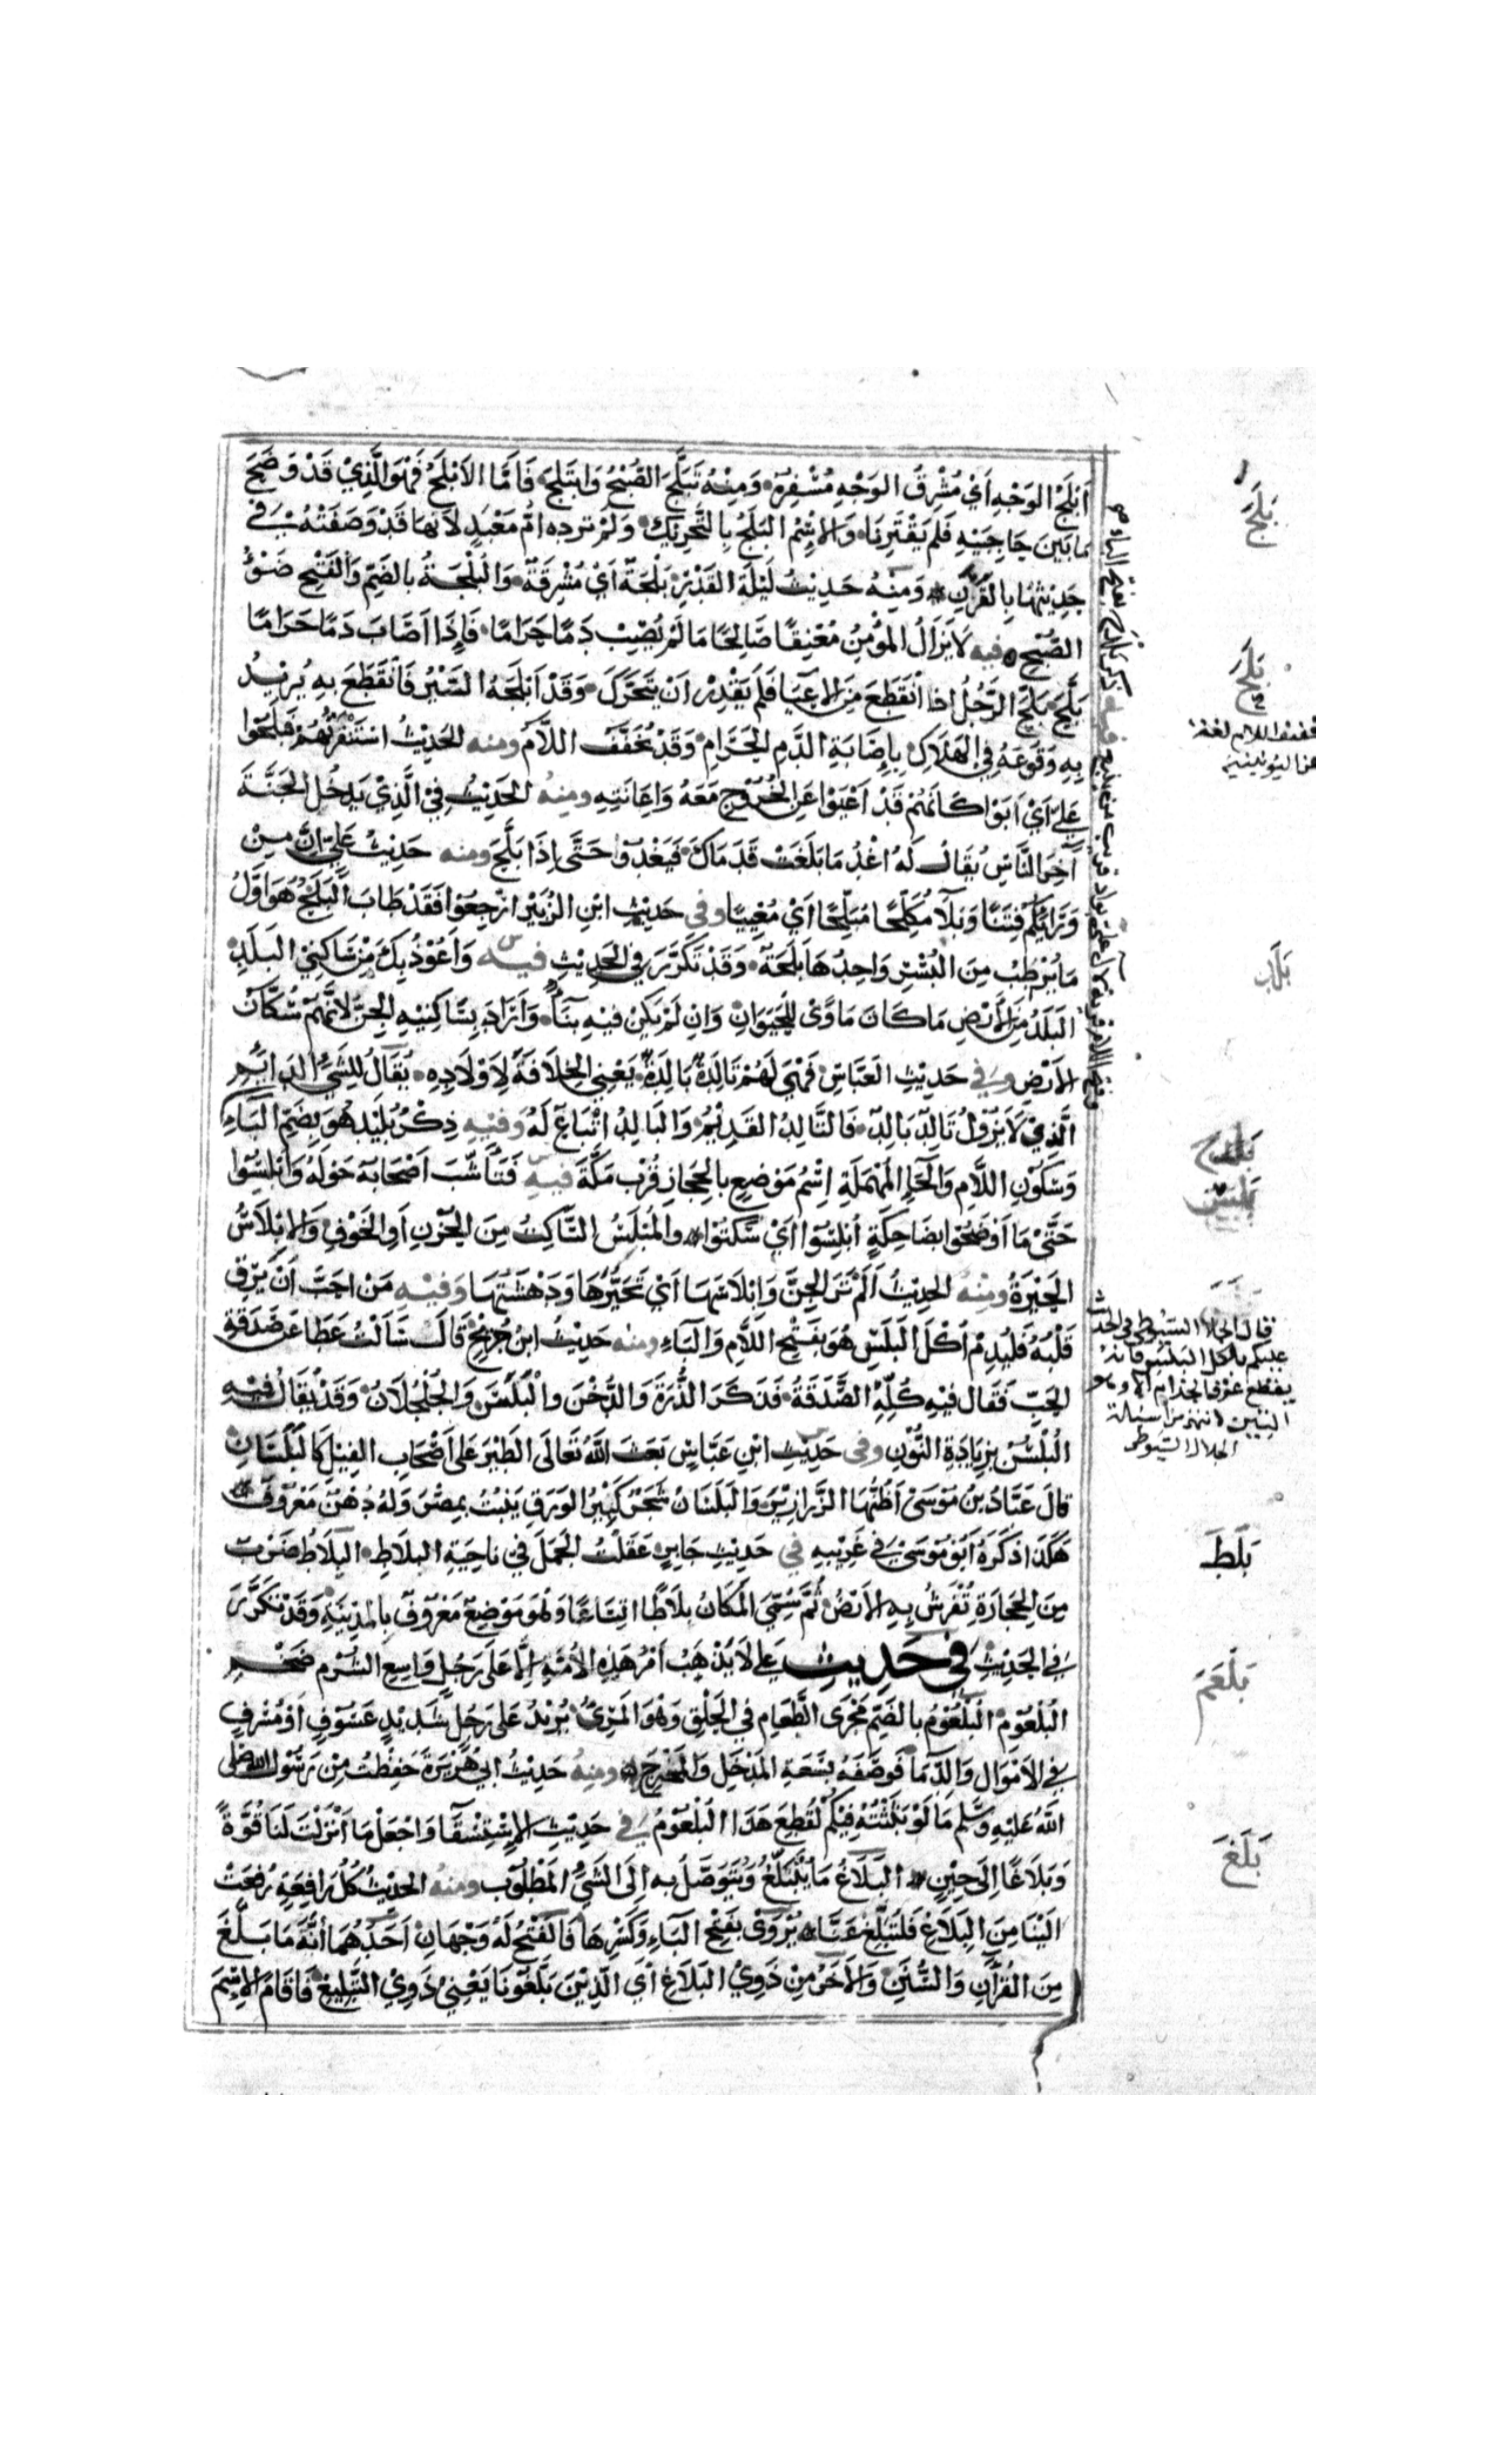 أَبْلَجُ الوَجْهِ أَيْ مُشْرِقُ الوَجْهِ مُسْفِرُهُ وَمِنْهُ تَبَلَّجَ الصُّبْحُ وَابْتَلَجَ فَأَمَّا الأَبْلَجُ فَهُوَ الَّذِيْ قَدْ وَضَحَ
مَا بَيْنَ حَاجِبَيْهِ فَلَمْ يَقْتَرِنَا وَالإِسْمُ البَلَجُ بِالتَّحْرِيْكِ وَلَمْ تُرِدْهُ أُمُّ مَعْبَدٍ لأَنَّهَا قَدْ وَصَفَتْهُ فِي
حَدِيْثِهَا بِالقَرَنِ وَمِنْهُ حَدِيْثُ لَيْلَةُ القَدْرِ بَلْجَةٌ أَيْ مُشْرِقَةٌ وَالبُلْجَةُ بِالضَمِّ وَالفَتْحِ ضَوْءُ
الصُّبْحِ فيه لَا يَزَالُ المُؤْمِنُ مُعْنِقًا صَالِحًا مَا لَمْ يُصِبْ دَمًا حَرَامًا فَإِذَا أَصَابَ دَمًا حَرَامًا
بَلَّحَ بَلَّحَ الرَّجُلُ اذا انْقَطَعَ مِنَ الإِعْيَاءِ فَلَمْ يَقْدِرْ أَنْ يَتَحَرَّكَ وَقَدْ أَبْلَحَهُ السَّيْرُ فَانْقَطَعَ بِهِ يُرِيْدُ
بِهِ وُقُوعَهُ فِي الهَلَاكِ بِإِصَابَةِ الدَّمِ الحَرَامِ وَقَدْ تُخَفَّفُ اللَّامُ ومنه الحَدِيْثُ اسْتَنْفَرْتُهُمْ فَبَلَحُوا
عَلَيَّ أَيْ أَبَوْا كَأَنَّهُمْ قَدْ أَعْيَوْا عَنِ الخُرُوْجِ مَعَهُ وَإِعَانَتِهِ ومِنْهُ الحَدِيْثُ فِيْ الَّذِيْ يَدْخُلُ الجَنَّةَ
آخِرَ النَّاسِ يُقَالُ لَهُ اغْدُ مَا بَلَغَتْ قَدَمَاكَ فَيَغْدُوْا حَتَّى إِذَا بَلَّحَ ومنه حَدِيْثُ عَلِيٍّ إِنَّ مِنْ
وَرَائِكُمْ فِتَنًا وَبَلَاءً مُكْلِحًا مُبْلِحًا أَيْ مُعْيِيًا وفي حَدِيْثِ ابْنِ الزُّبَيْرِ ارْجِعُوا فَقَدْ طَابَ البَلَحُ هُوَ أَوَّلُ
مَا يُرْطِبُ مِنَ البُسْرِ وَاحِدُهَا بَلَحَةٌ وَقَدْ تَكَرَّرَ فِي الحَدِيْثِ فيه وَأَعُوْذُ بِكَ مِنْ سَاكِنِيْ البَلَدِ
البَلَدُ مِنَ الأَرْضِ مَا كَانَ مَاوًى لِلحَيَوَانِ وَإِنْ لَمْ يَكُنْ فِيْهِ بِنَاءٌ وَأَرَادَ بِسَاكِنِيْهِ الجِنَّ لأَنَّهُمْ سُكَّانُ
الأَرْضِ وَفي حَدِيْثِ العَبَّاسِ فَهِيَ لَهُمْ تَالِدَةٌ بَالِدَةٌ يَعْنِي الخِلَافَةَ لِأَوْلَادِهِ يُقَالُ لِلشَيْءِ الدَائِمِ
الَّذِيْ لَا يَزُوْلُ تَالِدٌ بَالِدٌ فَالتَّالِدُ القَدِيْمُ وَالبَالِدُ اتْبَاعٌ لَهُ وَفِيْهِ ذِكْرُ بُلْيَدْ هُوَ بِضَمِّ البَاءِ
وَسُكُوْنِ اللَّامِ وَالحَاءِ المُهْمَلَةِ إِسْمُ مَوْضِعٍ بِالحِجَازِ قُرْبَ مَكَّةَ فيه فَتَأَشَّبَ أَصْحَابَهُ حَوْلَهُ وَأَبْلَسُوا
حَتَّىْ مَا أَوْضَحُوا بِضَاحِكَةٍ أَبْلَسُوا أَيْ سَكَتُوا والمُبْلِسُ السَّاكِتُ مِنَ الحُزْنِ أَوِ الخَوْفِ وَالإِبْلَاسُ
الحَيْرَةُ ومِنْهُ الحَدِيْثُ أَلَمْ تَرَ الجِنَّ وَإِبْلَاسَهَا أَيْ تَحَيُّرَهَا وَدَهْشَتَهَا وَفِيْهِ مَنْ أَحَبَّ أَنْ يَرِقَّ
قَلْبُهُ فَلْيُدِمْ أَكْلَ البَلَسِ هُوَ بِفَتْحِ اللَّامِ وَالبَاءِ ومنه حَدِيْثُ ابْنِ جُرَيْجٍ قَالَ سَأَلْتُ عَطَا عَنْ صَدَقَةِ
الحَبِّ فَقَالَ فِيْهِ كُلِّهِ الصَّدَقَةُ فَذَكَرَ الذُّرَةَ وَالدُّخْنَ وَالْبُلُسَ وَالجُلْجُلَانَ وَقَدْ يُقَالُ فِيْهِ
البُلْسُنُ بِزِيَادَةِ النُّوْنِ وفي حَدِيْثِ ابْنِ عَبَّاسٍ بَعَثَ اللهُ تَعَالَى الطَيْرَ عَلَى أَصْحَابِ الفِيْلِ كَالبَلَسَانِ
قَالَ عَبَّادُ بْنُ مُوسَىْ أَظُنُّهَا الزَّرَازِيْرَ وَالبَلَسَانُ شَجَرٌ كَثِيْرُ الوَرَقِ يَنْبُتُ بِمِصْرَ وَلَهُ دُهْنٌ مَعْرُوْفٌ
هَكَذَا ذَكَرَهُ أَبُوْ مُوْسَىْ فِي غَرِيْبِهِ في حَدِيْثِ جَابِرٍ عَقَلْتُ الجَمَلَ فِي نَاحِيَةِ البَلَاطِ البَلَاطُ ضَرْبٌ
مِنَ الحِجَارَةِ تُفْرَشُ بِهِ الأَرْضُ ثُمَّ سُمِّيَ المَكَانُ بَلَاطًا اتِّسَاعًا وَهُوَ مَوْضِعٌ مَعْرُوْفٌ بِالمَدِيْنَةِ وَقَدْ تَكَرَّرَ
فِي الحَدِيْثِ فِيْ حَدِيثِ عَلِي لَا يَذْهَبُ أَمْرُ هَذِهِ الأُمَّةِ إِلَّا عَلَى رَجُلٍ وَاسِعِ السُّرْمِ ضَخْمِ
البُلْعُوْمِ البُلْعُوْمُ بِالضَمِّ مَجْرَى الطَّعَامِ فِي الحَلْقِ وَهُوَ المَرِيُّ يُرِيْدُ عَلَى رَجُلٍ شَدِيْدٍ عَسُوْفٍ أَوْ مُسْرِفٍ
فِي الأَمْوَالِ وَالدِّمَاءِ فَوَصَفَهُ بِسَعَةِ المَدْخَلِ وَالمَخْرَجِ ومِنْهُ حَدِيْثُ أَبِي هُرَيْرَةَ حَفِظْتُ مِنْ رَسُوْلِ الله صلى
اللهُ عَلَيْهِ وَسَلَّمَ مَا لَوْ بَثَثْتُهُ فِيْكُمْ لَقُطِعَ هَذَا البُلْعُوْمُ فِي حَدِيْثِ الإِسْتِسْقَاءِ وَاجْعَلْ مَا أَنْزَلْتَ لَنَا قُوَّةً
وَبَلَاغًا إِلَى حِيْنٍ البَلَاغُ مَا يُتَبَلَّغُ وَيُتَوَصَّلُ بِهِ إِلَى الشَيْءِ المَطْلُوْبِ ومِنْهُ الحَدِيْثُ كُلُّ رَافِعَةٍ رَفَعَتْ
إِلَيْنَا مِنَ البَلَاغِ فَلْتُبَلِّغْ عَنَّا يُرْوَىْ بِفَتْحِ البَاءِ وَكَسْرِهَا فَالفَتْحُ لَهُ وَجْهَانِ أَحَدُهُمَا أَنَّهُ مَا بَلَّغَ
مِنَ القُرْآنِ وَالسُّنَنِ وَالآخَرُ مِنْ ذَوِيْ البَلَاغِ أَيْ الَّذِيْنَ بَلَّغُوْنَا يَعْنِيْ ذَوِيْ التَّبْلِيْغِ فَأَقَامَ الإِسْمَ
بَلَجَ
بَلَحَ
بَلَدَ
بلدح
بَلَسَ
قال الجلال السيوطي في الحديث
عليكم بأكل البلس فانه
يقطع عرق الجذام الا وهو
التين انتهى من رسالة
الجلال السيوطي
بَلَطَ
بَلْعَمَ
بَلَغَ